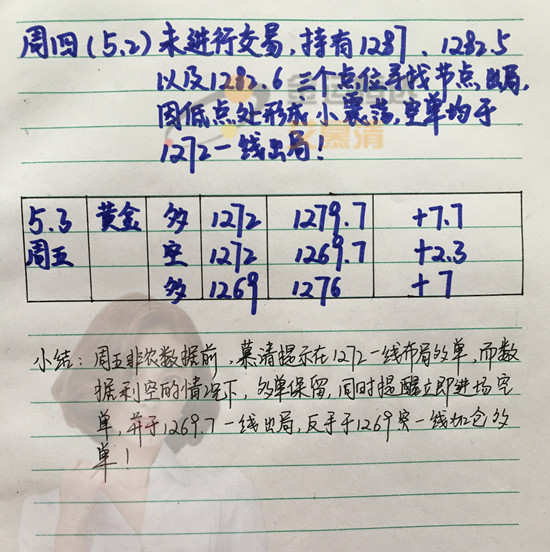 周四(5.2)未进行交易,持有1287、1282.5
以及1282.6三个点位寻找节点出局,
因低点处形成小震荡,空单均于
1272一线出局!
5.3 黄金 多 1272 1279.7 +7.7
周五 空 1272 1269.7 +2.3
多 1269 1276 +7
小结:周五非农数据前,慕清提示在1272一线布局多单,而数
据利空的情况下,多单保留,同时提醒立即进场空
单,并于1269.7一线出局,反手于1269第一线加仓多
单!